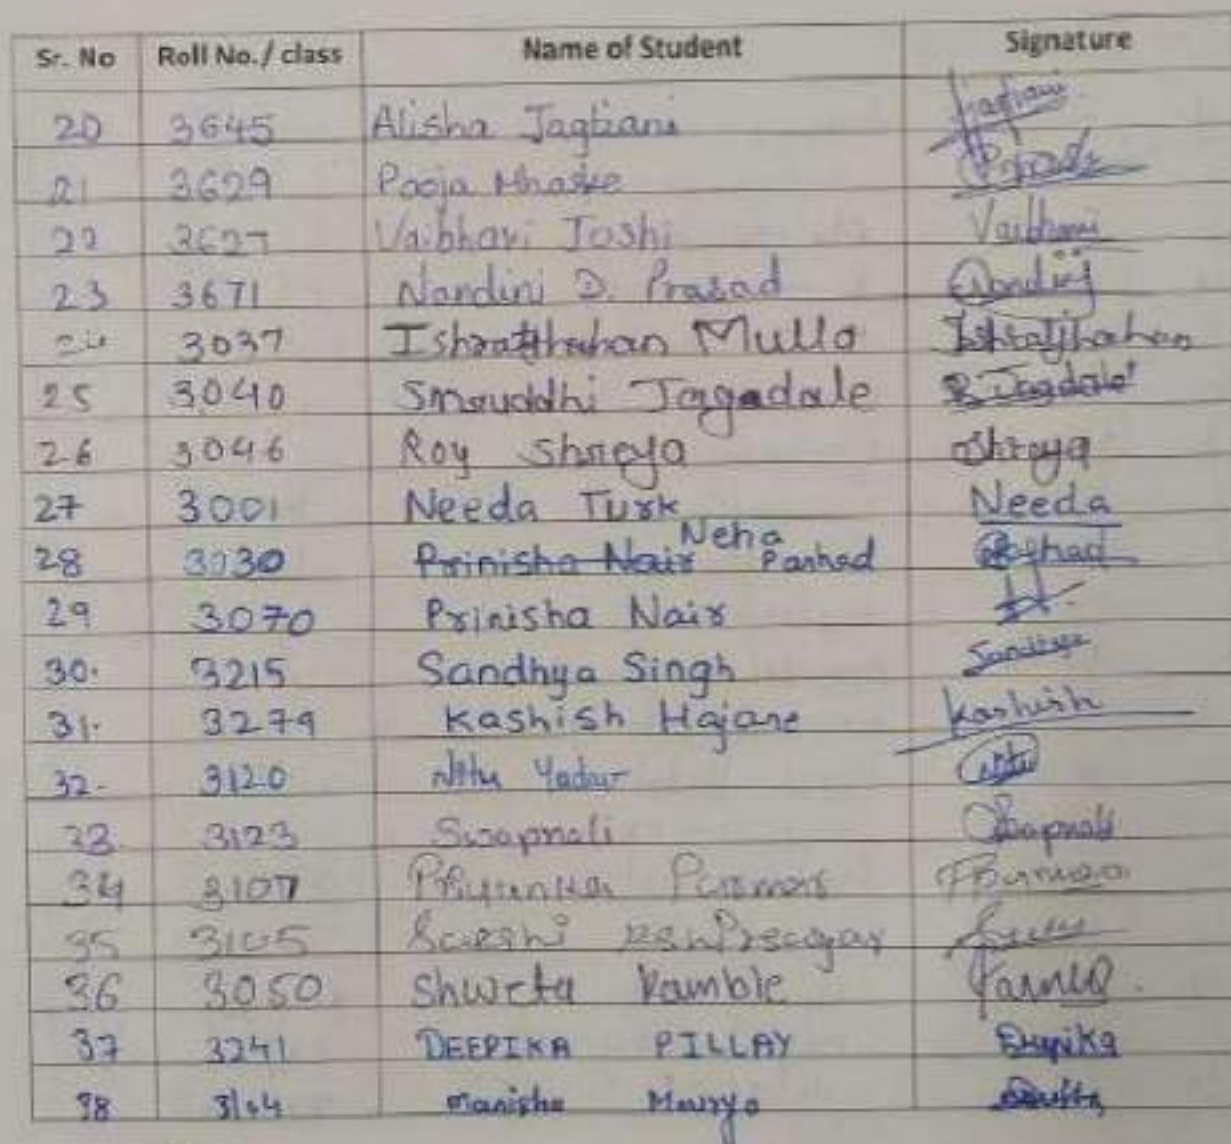 Sr. No Roll No./ class Name of Student Signature
20 3645 Alisha Jagtiani Jagtiani
21 3629 Pooja Mhaske
22 3627 Vaibhavi Joshi Vaibhavi
23 3671 Nandini D. Prasad Nandini
24 3037 Mulla Ishratjhahan
25 3040 Smruddhi Jagadale S. Jagdale
26 3046 Roy Shreya Shreya
27 3001 Needa Turk Needa
28 3030 Prinisha Nair Neha Parhad Parhad
29 3070 Prinisha Nair
30. 3215 Sandhya Singh Sandhya
31. 3279 Kashish Hajane Kashish
32. 3120 Nitu Yadav Nitu
33 3123 Swapnali Swapnali
34 3107 Priyanka Parmar
35 3105 Sakshi
36 3050 Shweta Kamble Kamble
37 3241 DEEPIKA PILLAY Deepika
38 3144 Manisha Maurya